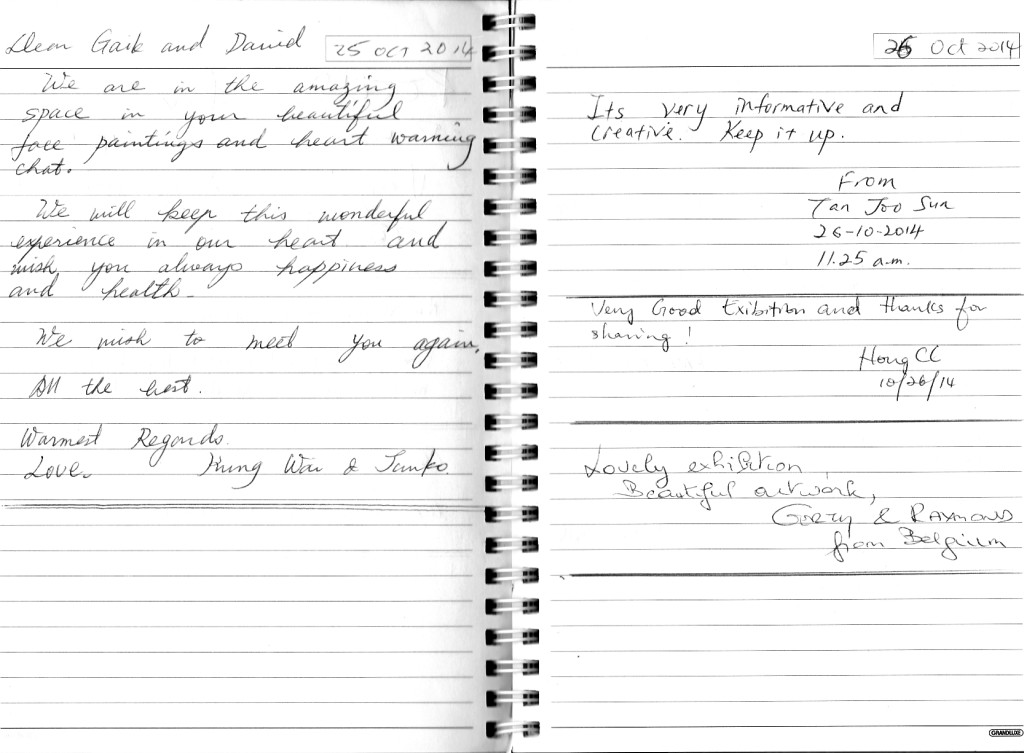 Dear Gaik and David
25 OCT 2014
We are in the amazing
space in your beautiful
face paintings and heart warming
chat.
We will keep this wonderful
experience in our heart and
wish you always happiness
and health.
We wish to meet you again.
All the best.
Warmest Regards.
Love. Kung Wai & Junko.
26 Oct 2014
Its very informative and
creative. Keep it up.
From
Tan Joo Sun
26-10-2014
11.25 a.m.
Very Good Exibition and thanks for
sharing!
Hong CC
10/26/14
Lovely exhibition,
Beautiful artwork,
& RAYMOND
from Belgium
GRANDLUXE